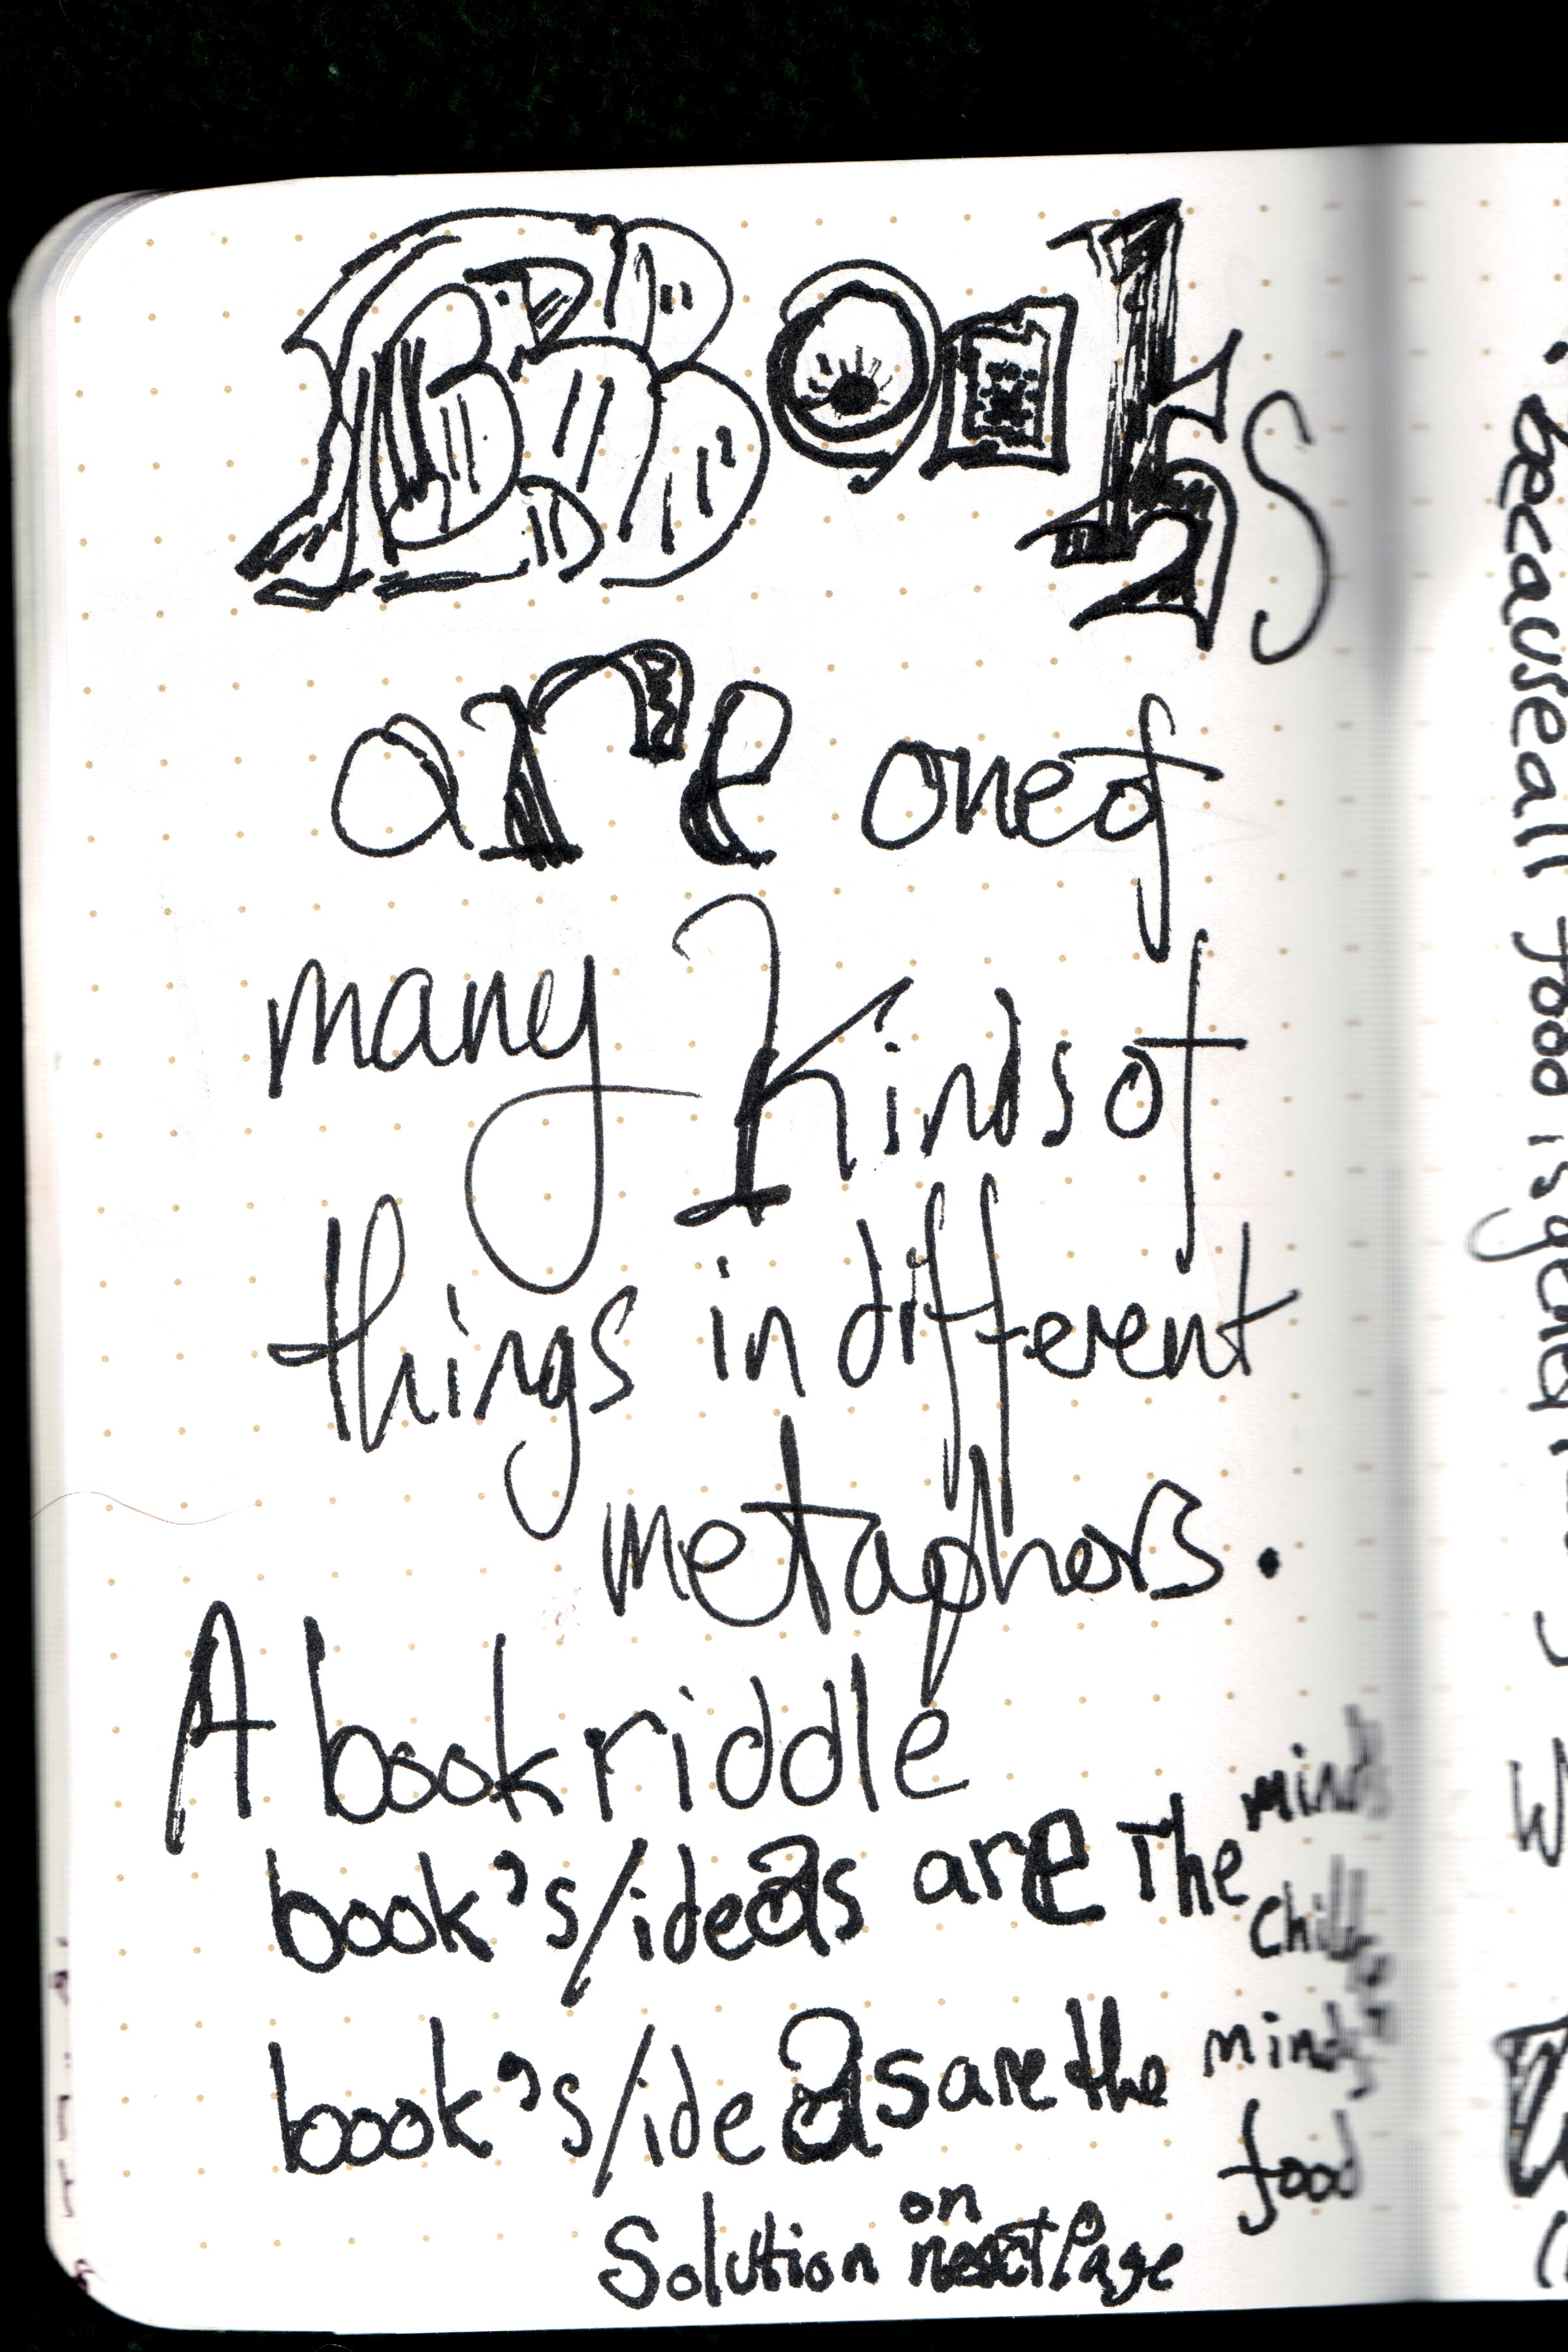 Books
are one of
many kinds of
things in different
metaphors.
A book riddle
book's/ideas are The minds
children
book's/ideas are the minds
food
Solution on next Page
because all food is